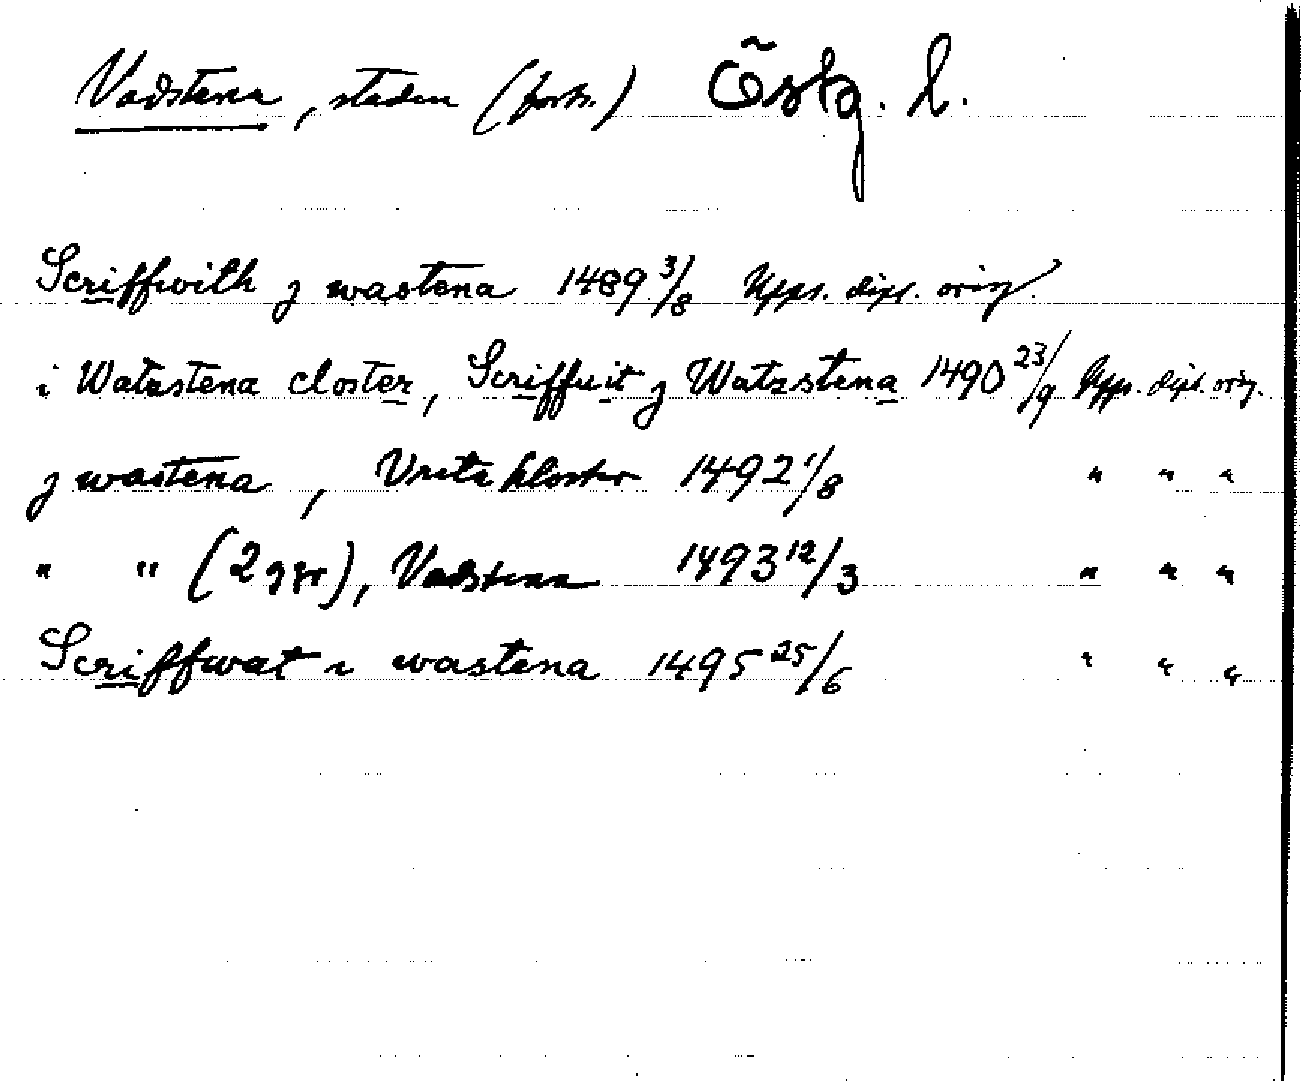 Vadstena, staden (forts.) Östg. l.
Scriffwith j wastena 1489 3/8 Upps. dipl. orig.
i Watzstena closter, Scriffuit j Watzstena 1490 23/9 Upps. dipl. orig.
j wastena, Vreta kloster 1492 1/8 " " "
" " (2 ggr), Vadstena 1493 12/3 " " "
Scriffwat i wastena 1495 25/6 " " "